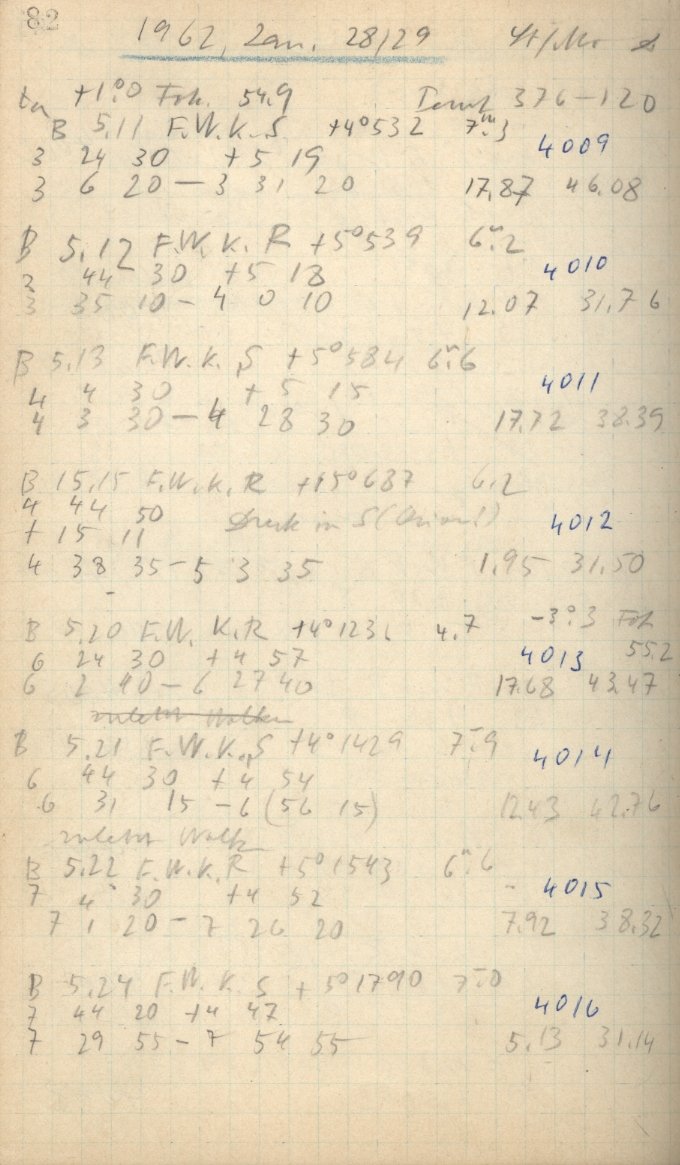 82
1962, Jan. 28/29
+1°.0 Fok. 54.9 Temp 376-120
B 5.11 F.W.K.S +4°532 7m.3
4009
3 24 30 +5 19
3 6 20 - 3 31 20 17.87 46.08
B 5.12 F.W.K.R +5°539 6m.2
2 44 30 +5 18 4010
3 35 10 - 4 0 10 12.07 31.76
B 5.13 F.W.K.S +5°584 6m.6
4 4 30 +5 15 4011
4 3 30 - 4 28 30 17.72 38.39
B 15.15 F.W.K.R +15°687 6.2
4 44 50 4012
+ 15 11
4 38 35 - 5 3 35 1.95 31.50
B 5.20 F.W.K.R +4°123 4.7 -3°.3 Fok
6 24 30 +4 57 4013 55.2
6 2 40 - 6 27 40 17.68 43.47
zuletzt Wolken
B 5.21 F.W.K.S +4°1429 7m.9
6 44 30 +4 54 4014
6 31 15 - 6 (56 15) 12.43 42.76
zuletzt Wolk
B 5.22 F.W.K.R +5°1543 6m.6
7 4 30 +4 52 4015
7 1 20 - 7 26 20 7.92 38.32
B 5.24 F.W.K.S +5°1790 7m.0
7 44 20 +4 47 4016
7 29 55 - 7 54 55 5.13 31.14